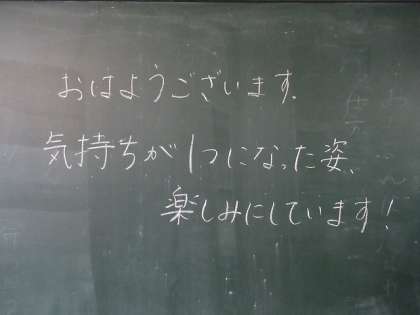 おはようございます.
気持ちが1つになった姿、
楽しみにしています!